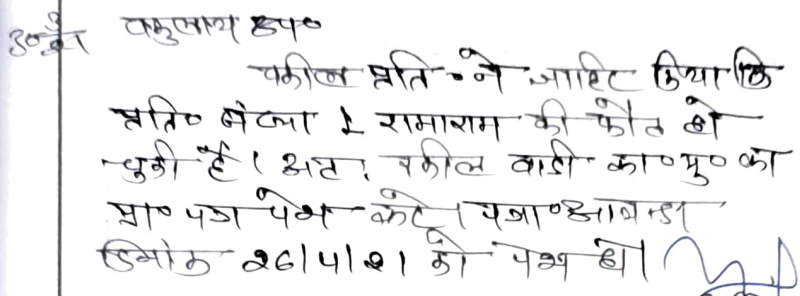 30/3/21 वकुलाय उप०
वकील प्रति० ने जाहिर किया कि
प्रति० संख्या 1 रामाराम की फौत हो
चुकी है। अत: वकील वादी का० मु० का
प्रा० पत्र पेश करे। पत्रा० आयन्दा
दिनांक 26/4/21 को पेश हो।